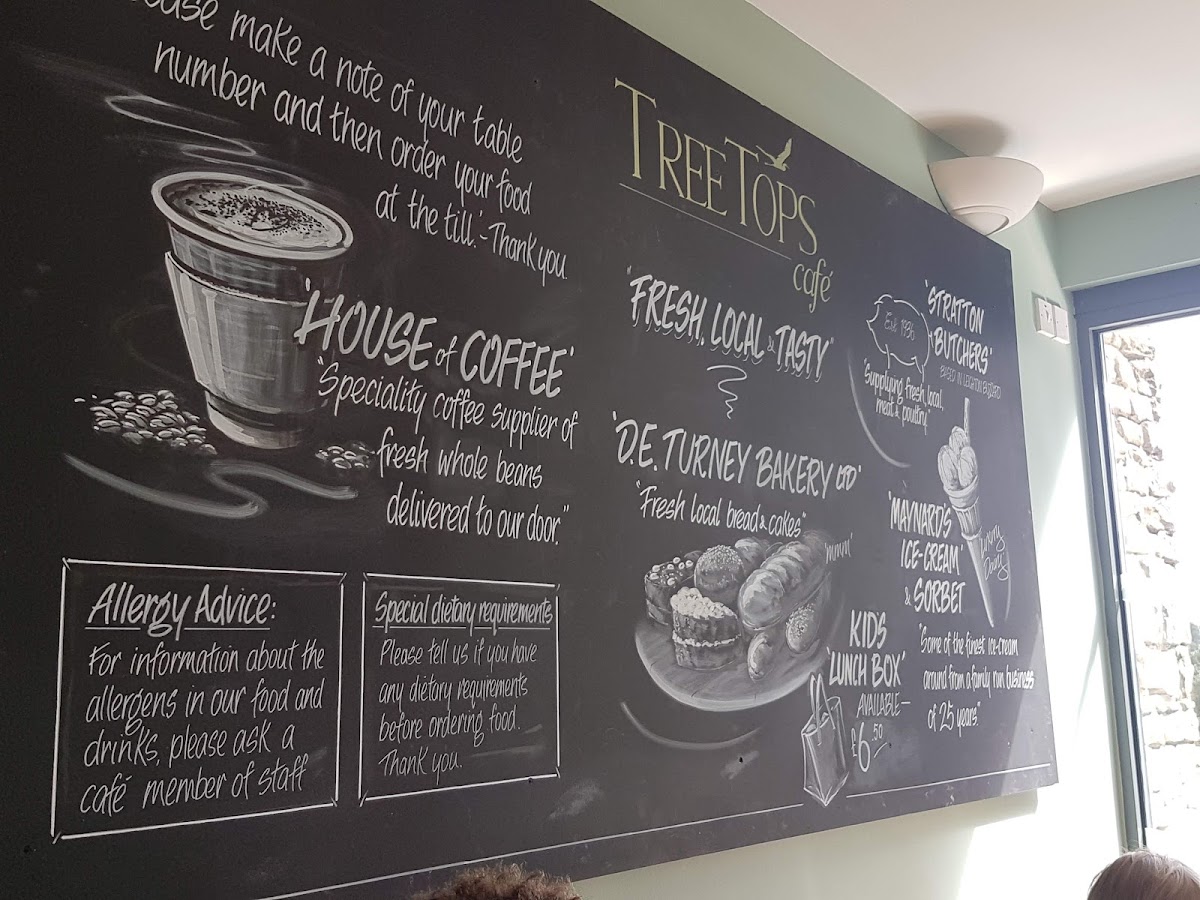 make a note of your table
number and then order your food
at the till.'-Thank you.
'HOUSE of COFFEE'
"Speciality coffee supplier of
fresh whole beans
delivered to our door."
Allergy Advice:
For information about the
allergens in our food and
drinks, please ask a
café member of staff
Special dietary requirements
Please tell us if you have
any dietary requirements
before ordering food.
Thank you.
TREETOPS
café
'FRESH, LOCAL & TASTY'
'D.E. TURNEY BAKERY LTD'
"Fresh local bread & cakes"
'mmm'
KID'S
'LUNCH BOX'
AVAILABLE-
£6.50
Est. 1936
'STRATTON
BUTCHERS'
BASED IN LEIGHTON BUZZARD
"Supplying fresh, local,
meat & poultry"
'MAYNARD'S
ICE-CREAM'
& SORBET
"Some of the finest ice-cream
around from a family run business
of 25 years"